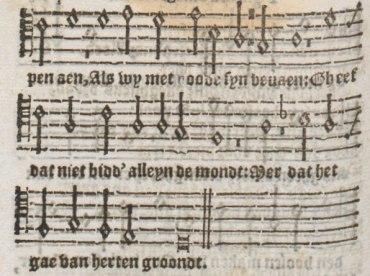 pen aen, Als wy met noode syn beuaen: Gheef
dat niet bidd' alleyn de mondt: Mer dat het
gae van herten groondt.